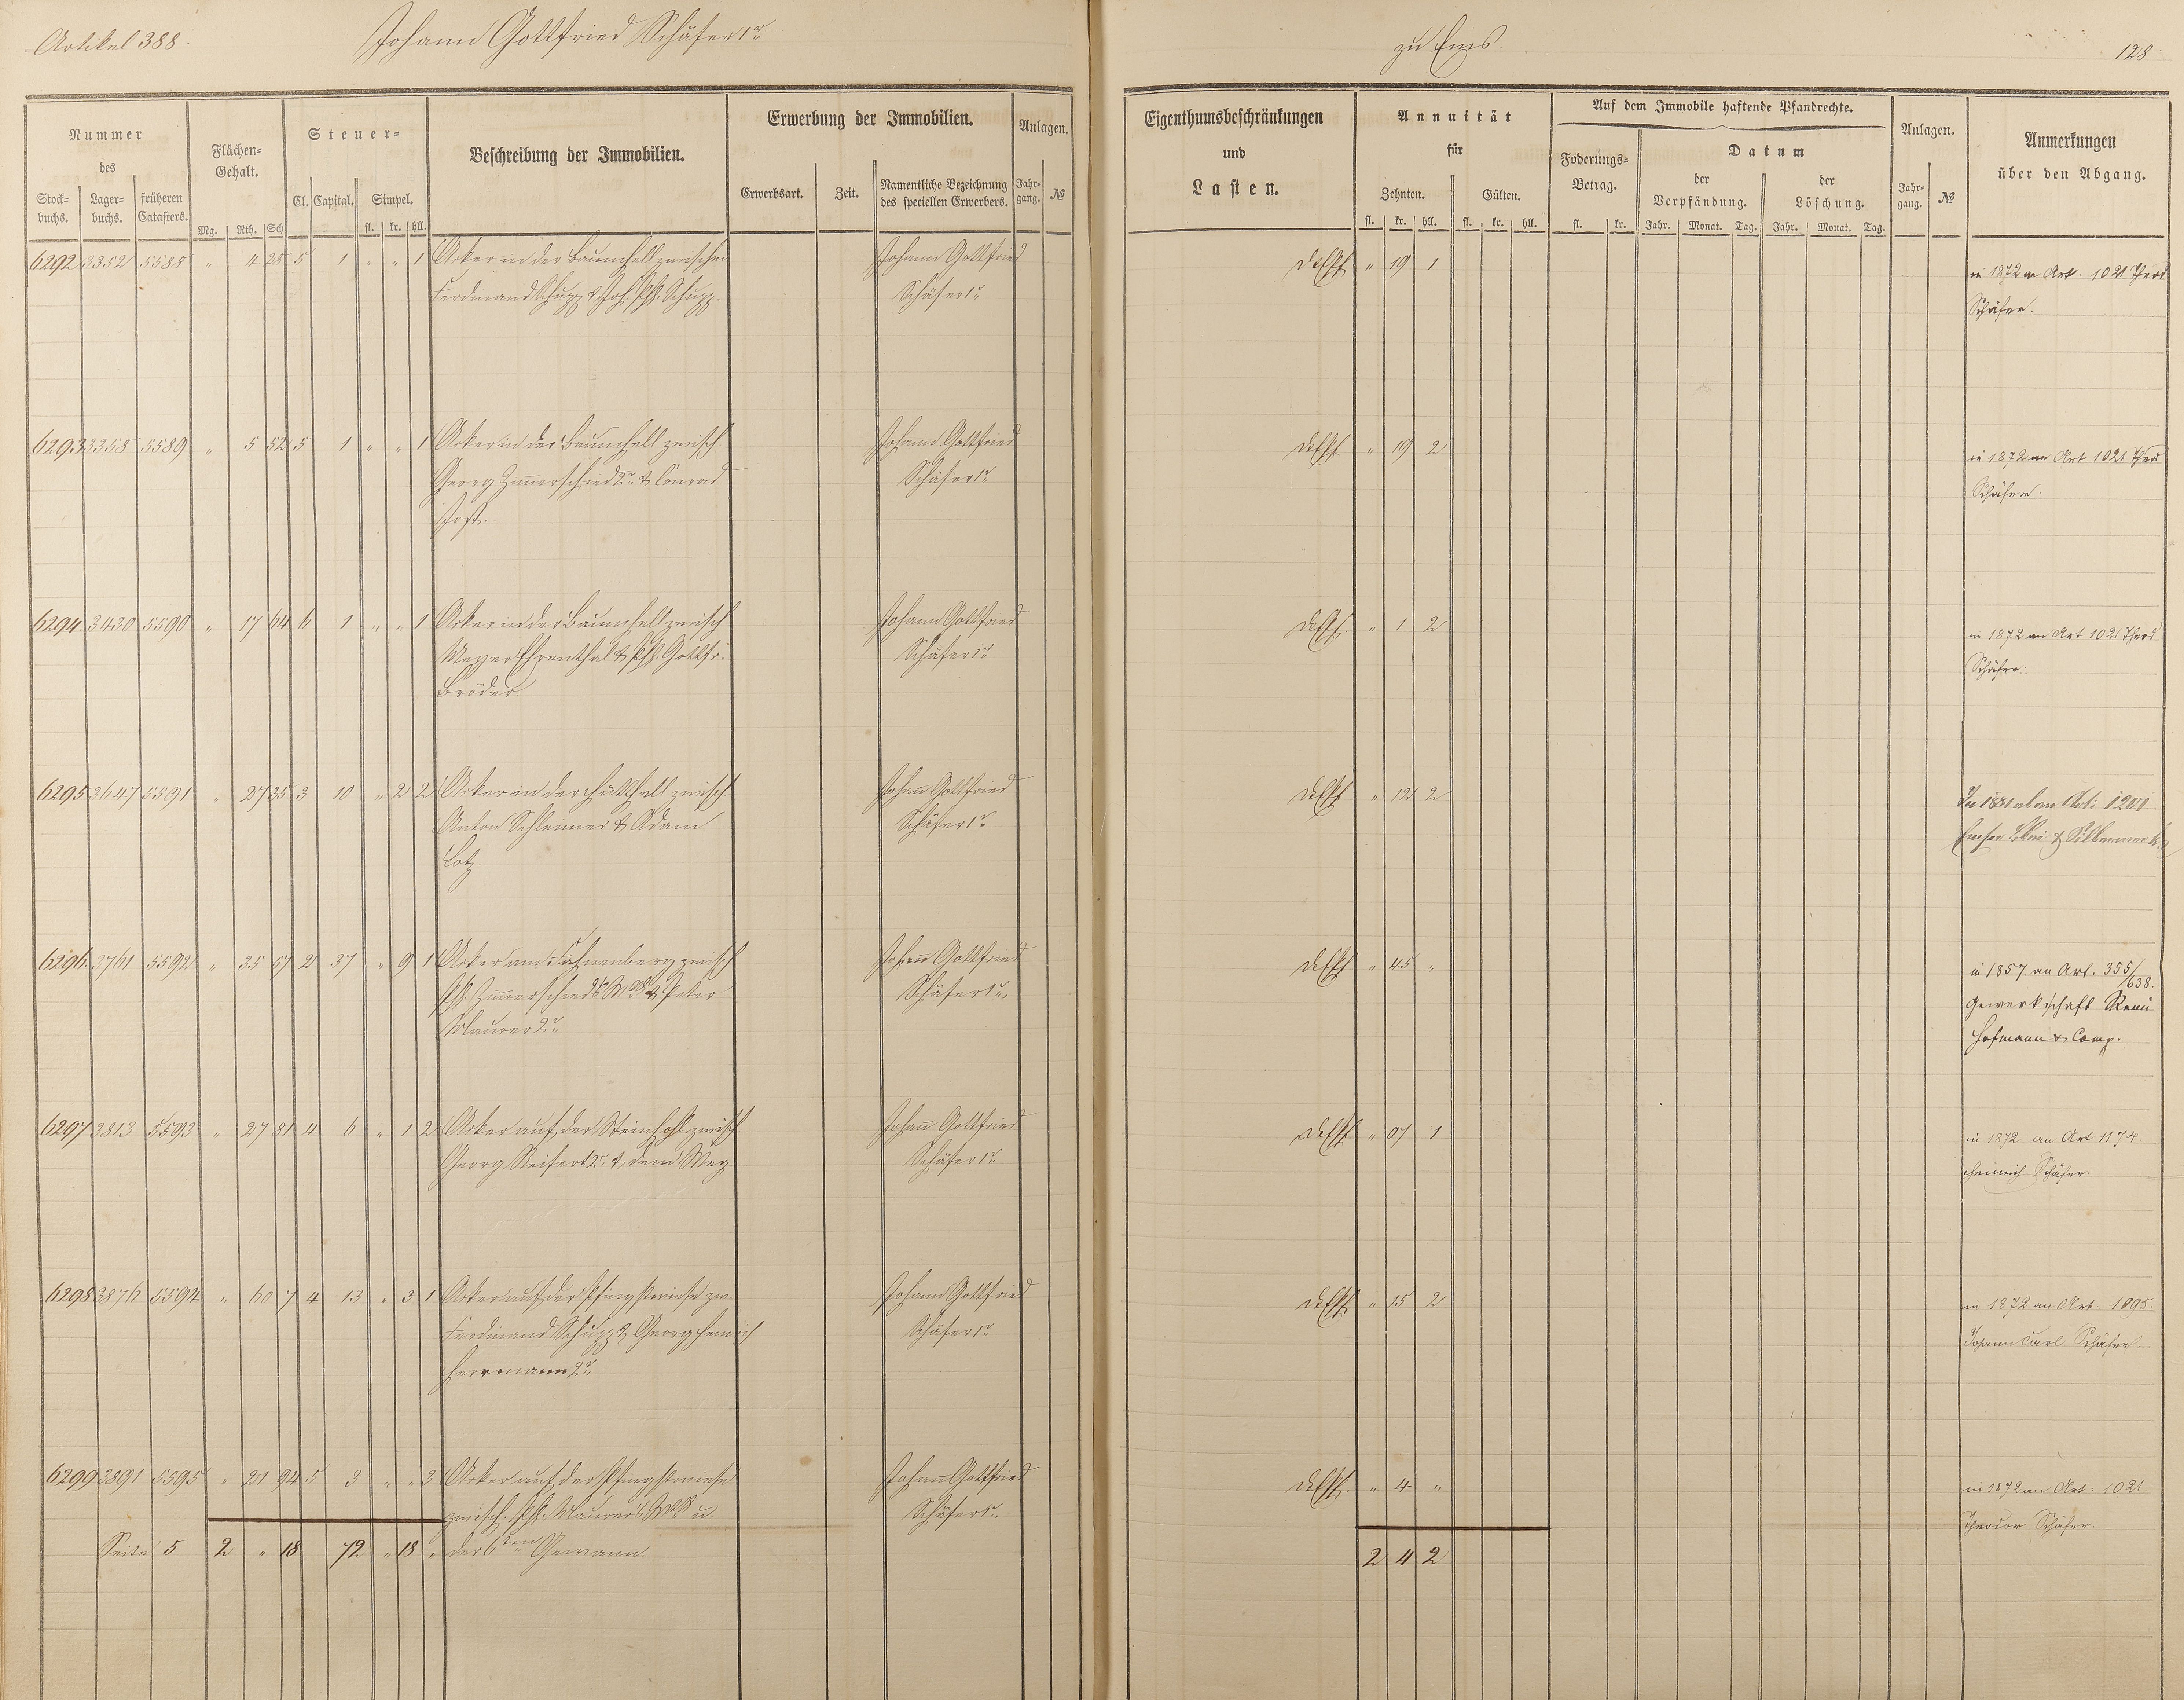 Artikel 388. Johann Gottfried Schäfer 1r zu Ems. 128
Nummer
des
Stock-buchs. Lager-buchs. früheren Catasters.
Flächen-Gehalt.
Mg. Rth. Sch
Steuer-
Cl. Capital. Simpel.
fl. kr. hll.
Beschreibung der Immobilien.
Erwerbung der Immobilien.
Erwerbsart. Zeit. Namentliche Bezeichnung des speciellen Erwerbers.
Anlagen.
Jahr-gang. №
Eigenthumsbeschränkungen
und
Lasten.
Annuität
für
Zehnten. Gülten.
fl. kr. hll. fl. kr. hll.
Auf dem Immobile haftende Pfandrechte.
Foderungs-Betrag.
fl. kr.
Datum
der Verpfändung. der Löschung.
Jahr. Monat. Tag. Jahr. Monat. Tag.
Anlagen.
Jahr-gang. №
Anmerkungen
über den Abgang.
6292 3352 5588 " 4 25 5 1 " " 1 Acker in der Baumhell zwischen Johann Gottfried " 19 1 in 1872 an Art. 1021 Theod
Ferdinand Schupp & Joh. Ph. Schupp. Schäfer 1r Schäfer.
6293 3358 5589 " 5 52 5 1 " " 1 Acker in der Baumhell zwisch. Johann Gottfried " 19 2 in 1872 an Art 1021 Theod
Georg Zimmerschied 2r & Conrad Schäfer 1r Schäfer.
Jost.
6294 3430 5590 " 17 64 6 1 " " 1 Acker in der Baumhell zwisch Johann Gottfried " 1 2 in 1872 an Art 1021 Theod
Meyer Ehrenthal & Ph. Gottfr. Schäfer 1r Schäfer.
Bröder.
6295 3647 5591 " 27 35 3 10 " 2 2 Acker in der Hütthell zwisch. Johann Gottfried " 12 2 In 1881 Art: 1201
Anton Schleimer & Adam Schäfer 1r Emser Blei & Silberwerk
Lotz.
6296 3761 5592 " 35 57 2 37 " 9 1 Acker am Hahnenberg zwisch Johann Gottfried " 45 " in 1857 an Art. 355/658.
Ph. Zimmerschied & Peter Schäfer 1r Gewerkschaft Remi
Maurer 2r Hofmann & Comp.
6297 3813 5593 " 27 81 4 6 " 1 2 Acker auf der Steinhohl zwisch Johann Gottfried " 07 1 in 1872 an Art 1174.
Georg Seifert 2r & dem Weg. Schäfer 1r Heinrich Schäfer.
6298 3876 5594 " 60 7 4 13 " 3 1 Acker auf der Pfingstwiese zw. Johann Gottfried " 15 2 in 1872 an Art. 1095.
Ferdinand Schupp & Georg Heinrich Schäfer 1r Johann Carl Schäfer.
Herrmann 2r
6299 3891 5595 " 21 94 5 3 " " 3 Acker auf der Pfingstwiese Johann Gottfried " 4 " in 1872 an Art. 1021.
zwisch. Ph. Maurers u. Schäfer 1r Theodor Schäfer.
Seite 5 2 " 18 72 " 18 " der 6ten Gewann. 2 4 2